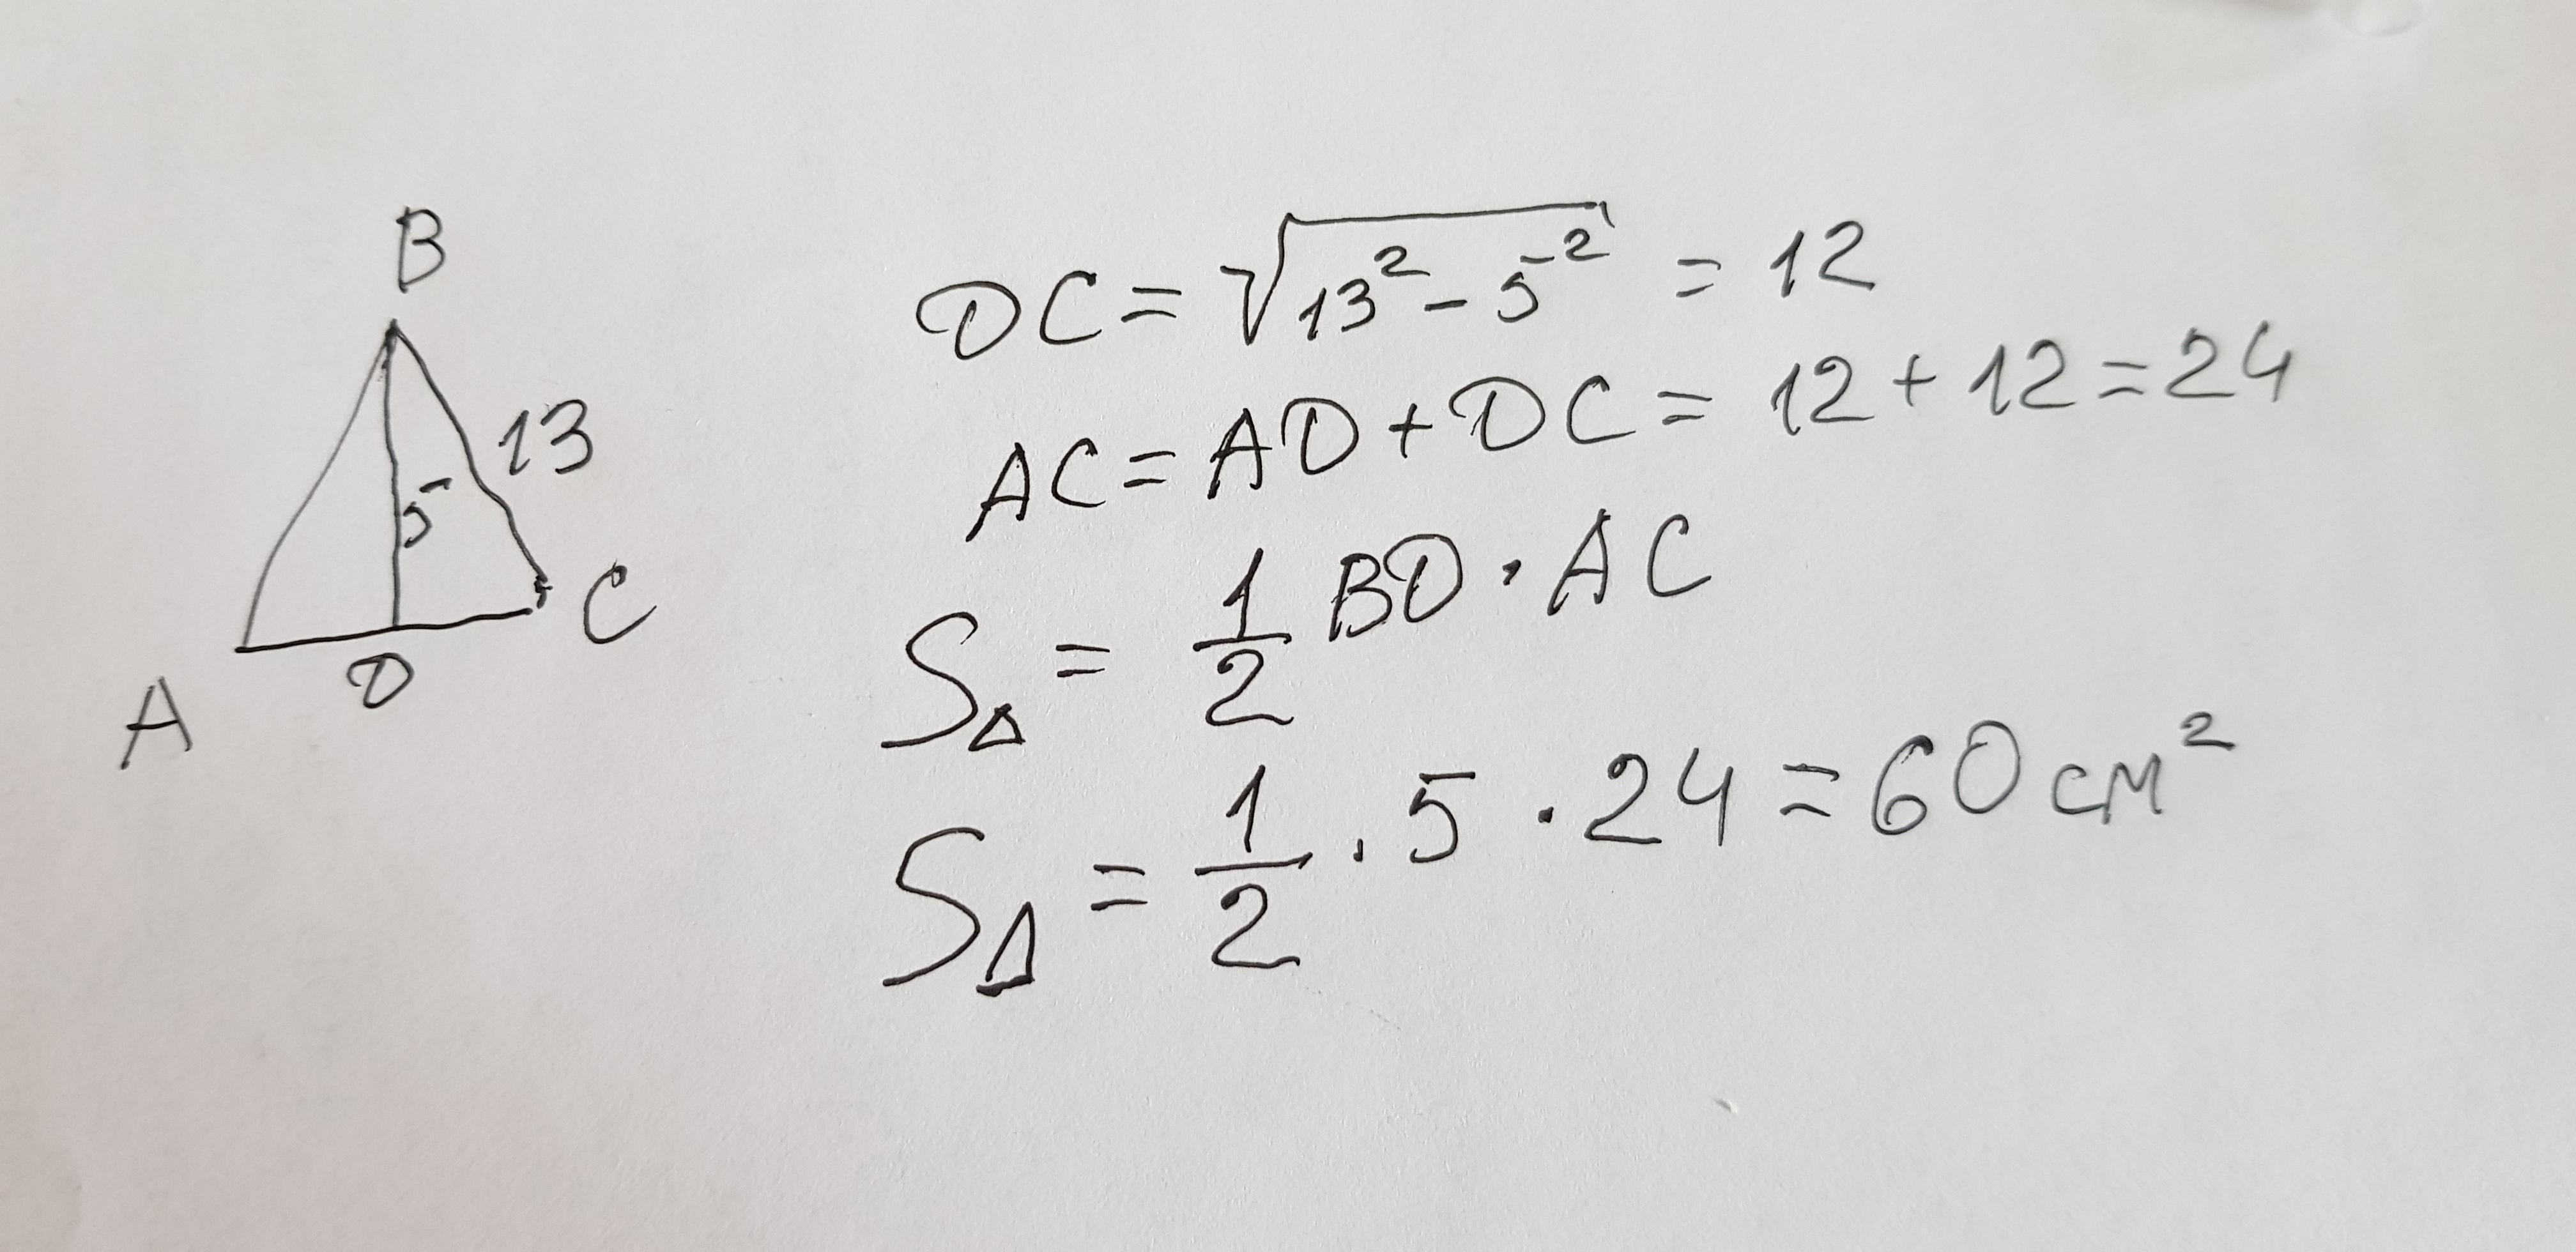 B
13
5
A
D
C
DC = √13² - 5² = 12
AC = AD + DC = 12 + 12 = 24
S△ = 1/2 BD · AC
S△ = 1/2 · 5 · 24 = 60 см²